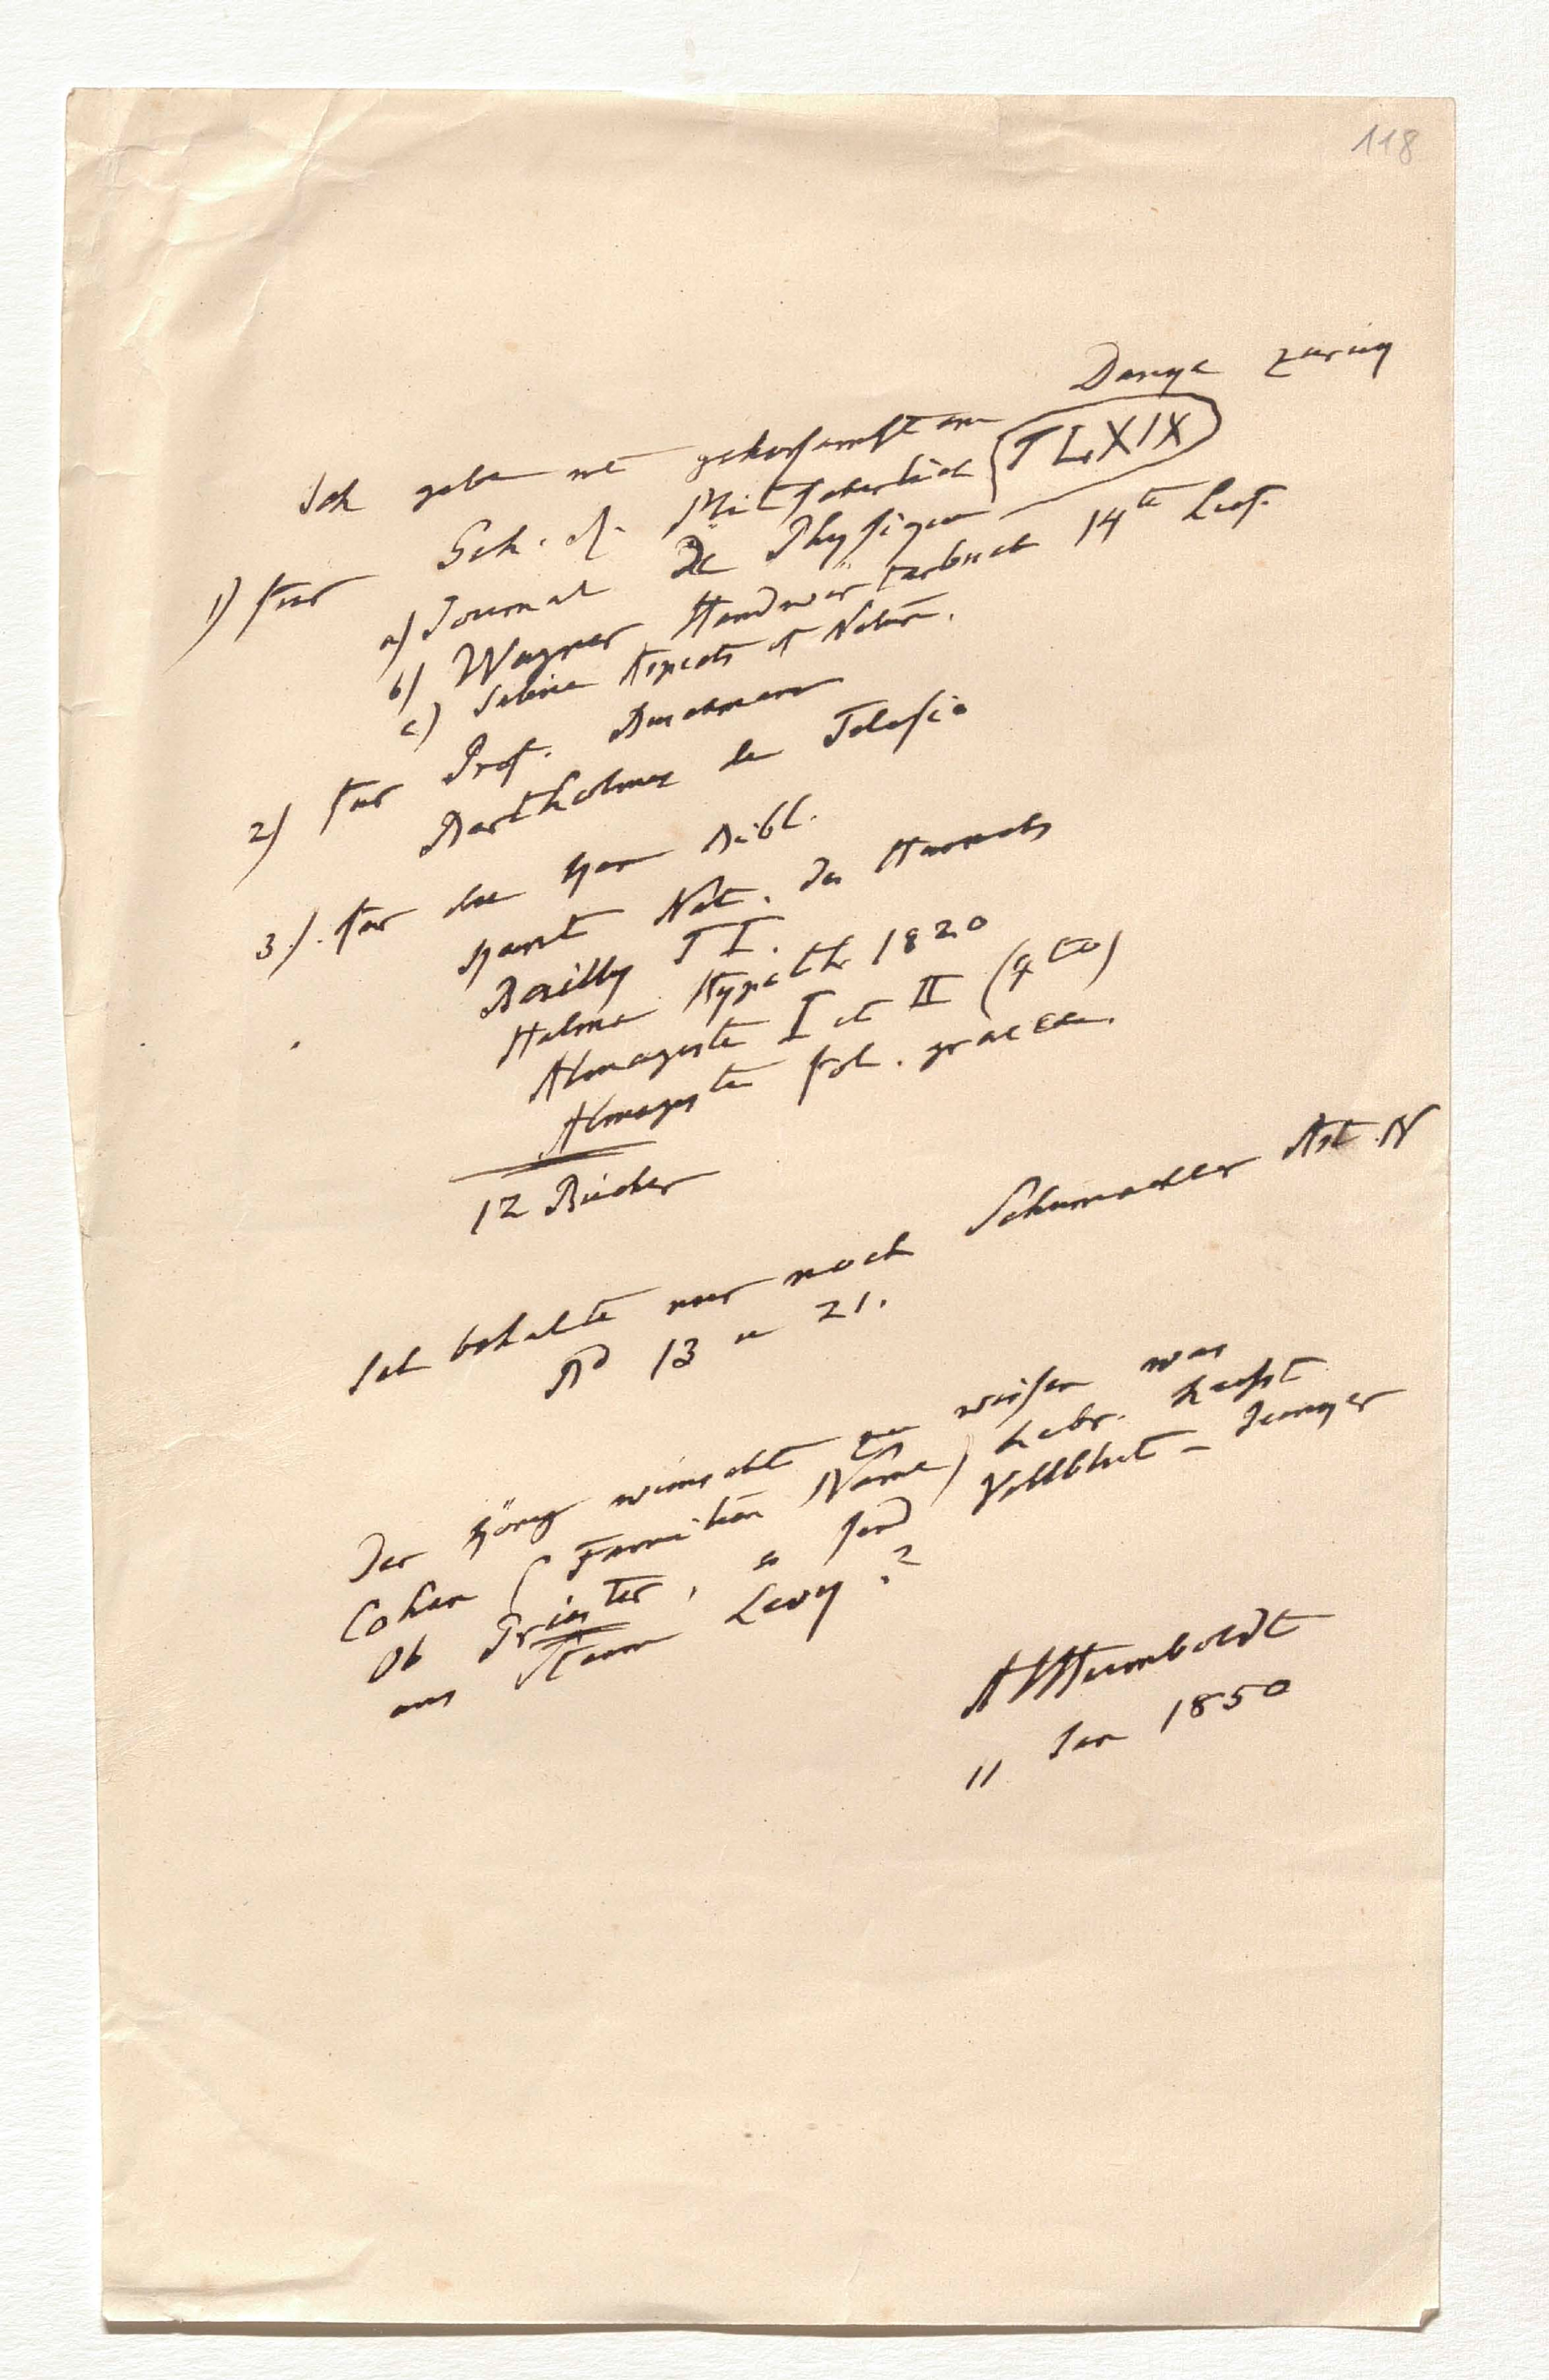 118
Ich gebe mit gehorsamstem Danke zurük
1) für Geh. R. Mitscherlich
a) Journal de Physique T LXIX
b) Wagner Handwörterbuch 14te Lief.
c) Sabine Aspects of Nature.
2) für Prof. Buschmann
Bartholmes de Telesio
3) für die Kön Bibl.
Kant Nat. des Himmels
Bailly T I.
Halma Hypoth 1820
Almageste I et II (4to)
Almageste fol. graece.
12 Bücher
Ich behalte nur noch Schumacher Ast. N
Bd 13 u 21.
Der König wünscht zu wissen was
Cohen (Familien Name) hebr. heisst
Ob Priester, so sind Vollblut-
aus Stamm Levy?
AVHumboldt
11 Jan 1850